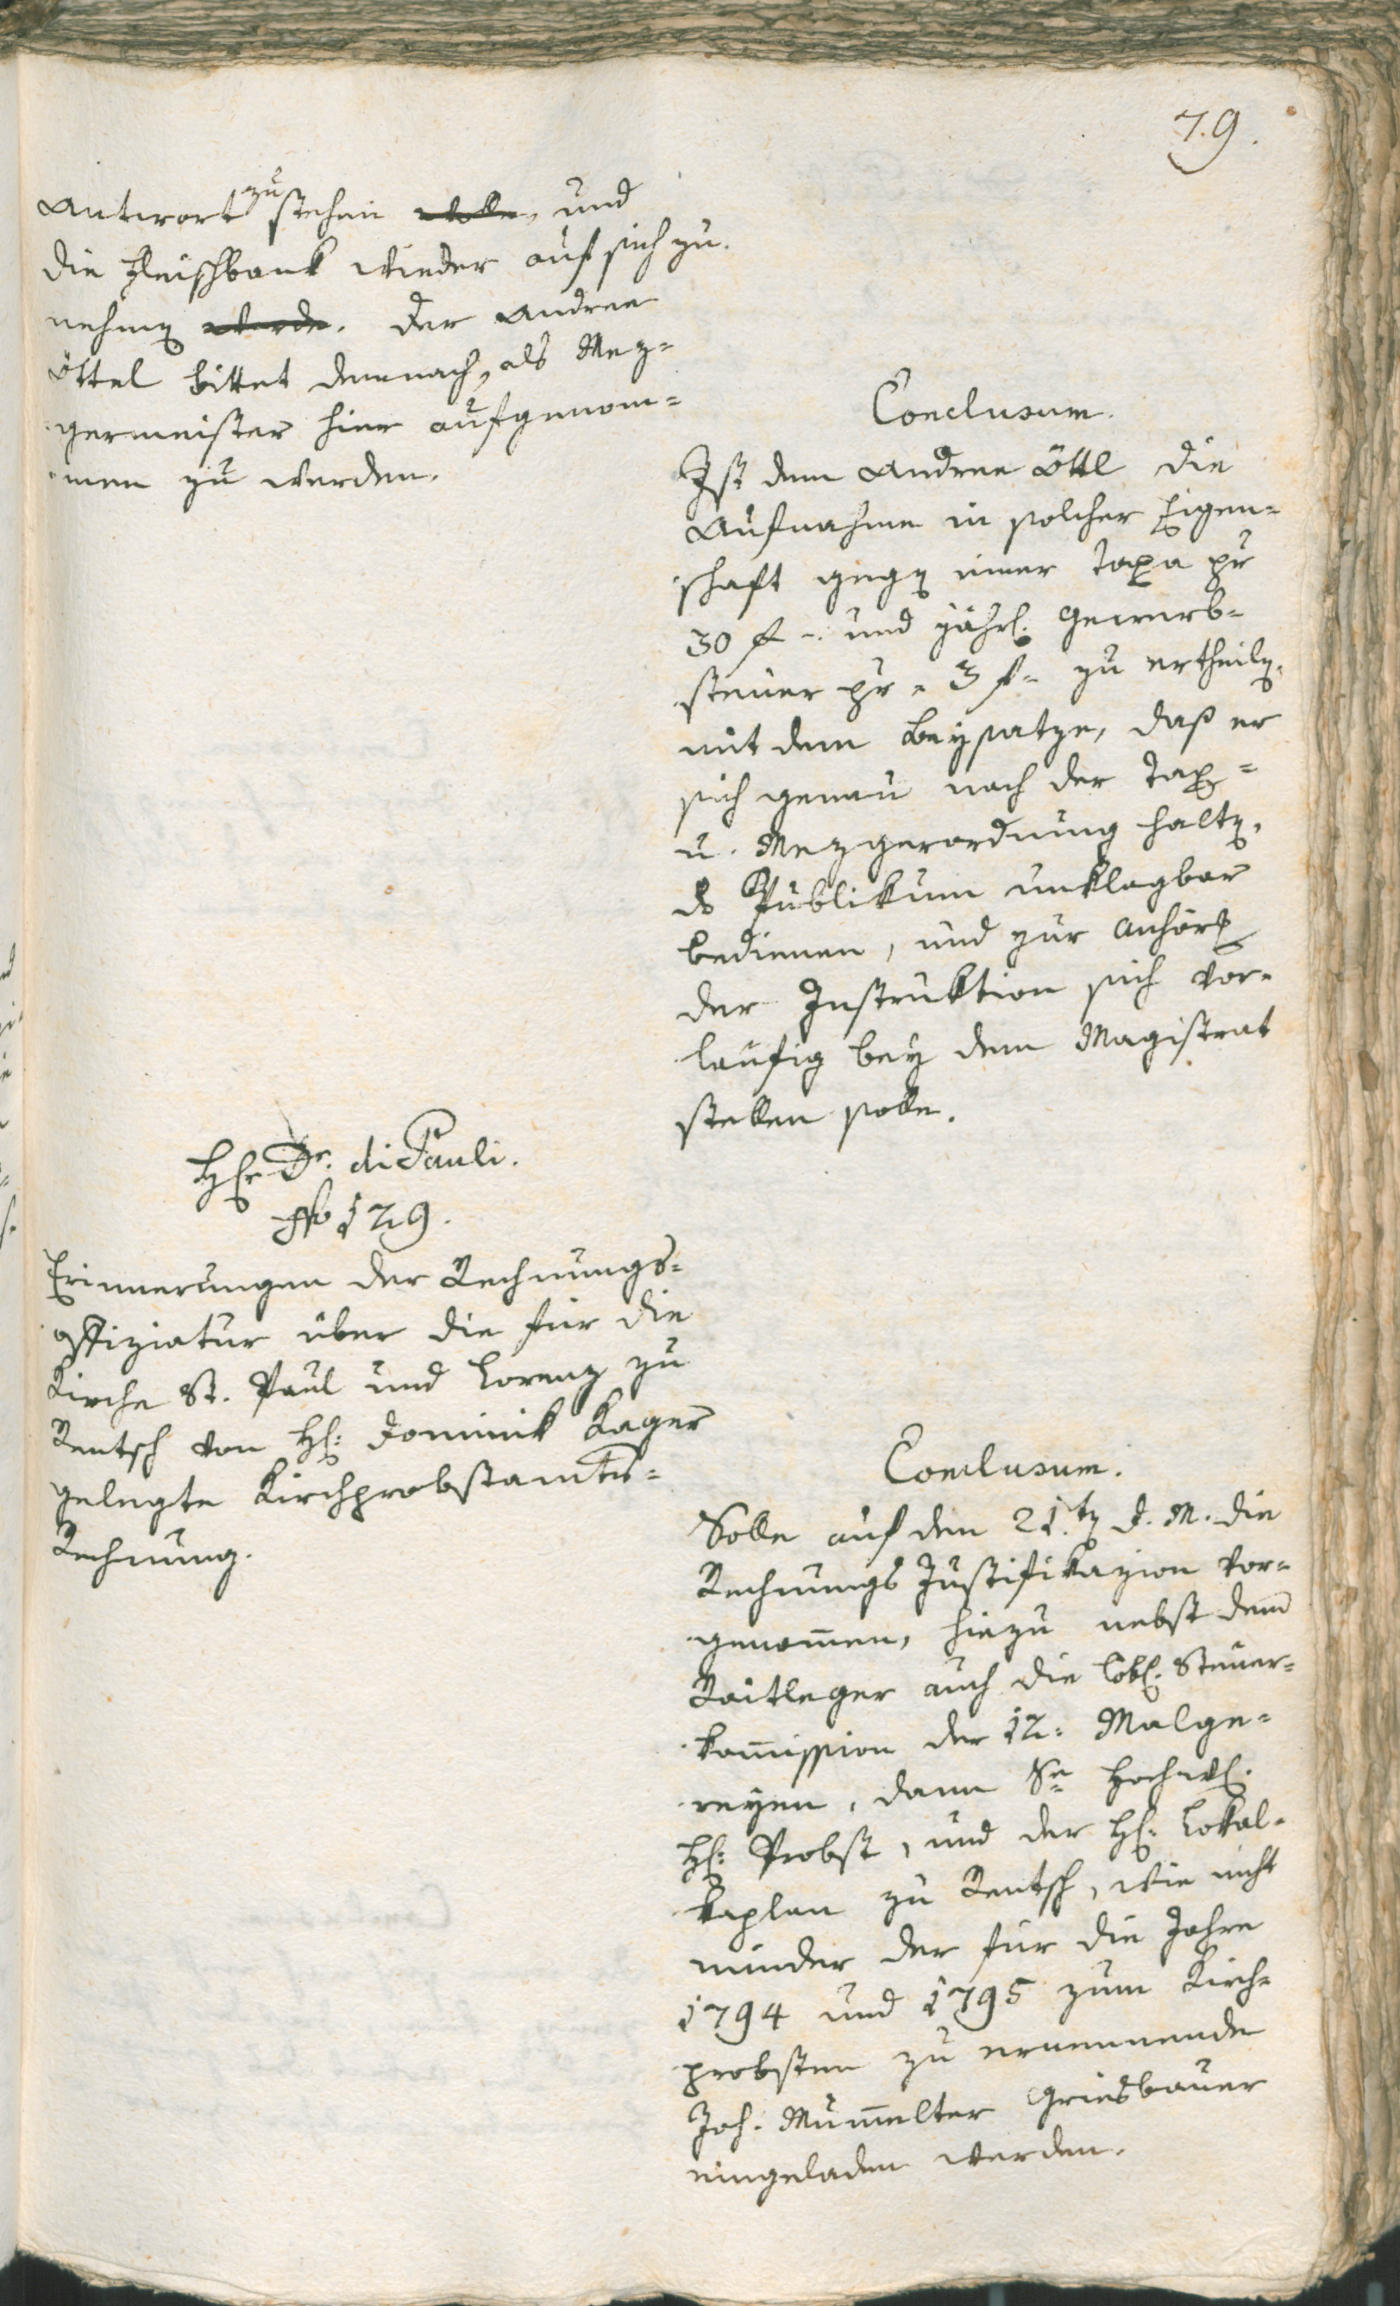 79.
Antwort zu stehen wolle, und
die Fleischbank wieder auf sich zu
nehmen werde. Der Andree
Öttel bittet demnach, als Mez-
germeister hier aufgenom-
men zu werden.
Conclusum.
Ist dem Andree Öttl die
Aufnahme in solcher Eigen-
schaft gegen einer Taxa pr
30 f -. und jährl. Gewerb-
steuer pr = 3 f = zu ertheilen,
mit dem Beysatze, daß er
sich genau nach der Tax-
u. Mezgerordnung halten,
das Publikum unklagbar
bedienen, und zur Anhörung
der Instruktion sich vor-
läufig bey dem Magistrat
stellen solle.
Herr Dr. di Pauli.
No 129.
Erinnerungen der Rechnungs-
offiziatur über die für die
Kirche St. Paul und Lorenz zu
Rentsch von H: Dominik Kager
gelegte Kirchprobstamts-
Rechnung.
Conclusum.
Solle auf den 21.ten d. M. die
Rechnungs Justifikazion vor-
genommen, hiezu nebst dem
Raitleger auch die löbl. Steuer-
kommission der 12: Malge-
reyen, dann Se Hochw.
H: Probst, und der H: Lokal-
kaplan zu Rentsch, wie nicht
minder der für die Jahre
1794 und 1795 zum Kirch-
probsten zu ernennende
Joh. Mummelter Griesbauer
eingeladen werden.